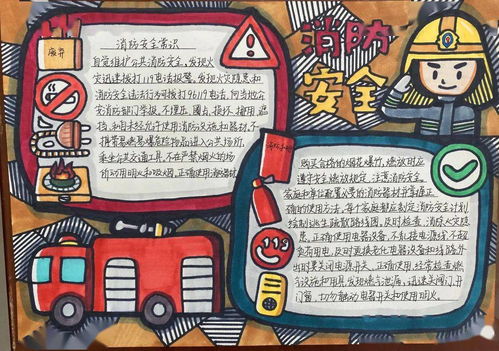 消防
安全
废弃
消防安全常识
自觉维护公共消防安全,发现火
灾迅速拨打119电话报警,发现火灾隐患和
消防安全违法行为可拨打96119电话,向当地公
安消防部门举报。不埋压、圈占、损坏、挪用、遮
挡、和未经允许使用消防设施和器材。不
携带易燃易爆危险物品进入公共场所、
乘坐公共交通工具,不在严禁烟火的场
所动用明火和吸烟,正确使用消防器材
消防手册
119
购买合格的烟花爆竹,燃放时应
遵守安全燃放规定,注意消防安全。
家庭和单位配置必要的消防器材并掌握正
确的使用方法。每个家庭都应制定消防安全计划
绘制逃生疏散路线图,及时检查、消除火灾隐
患。正确使用电器设备,不乱接电源线,不超
负荷用电,及时更换老化电器设备和线路,外
出时要关闭电源开关。正确使用,经常检查燃
气设施和用具,发现燃气泄漏,迅速关阀门、开
门窗,切勿触动电器开关和使用明火。